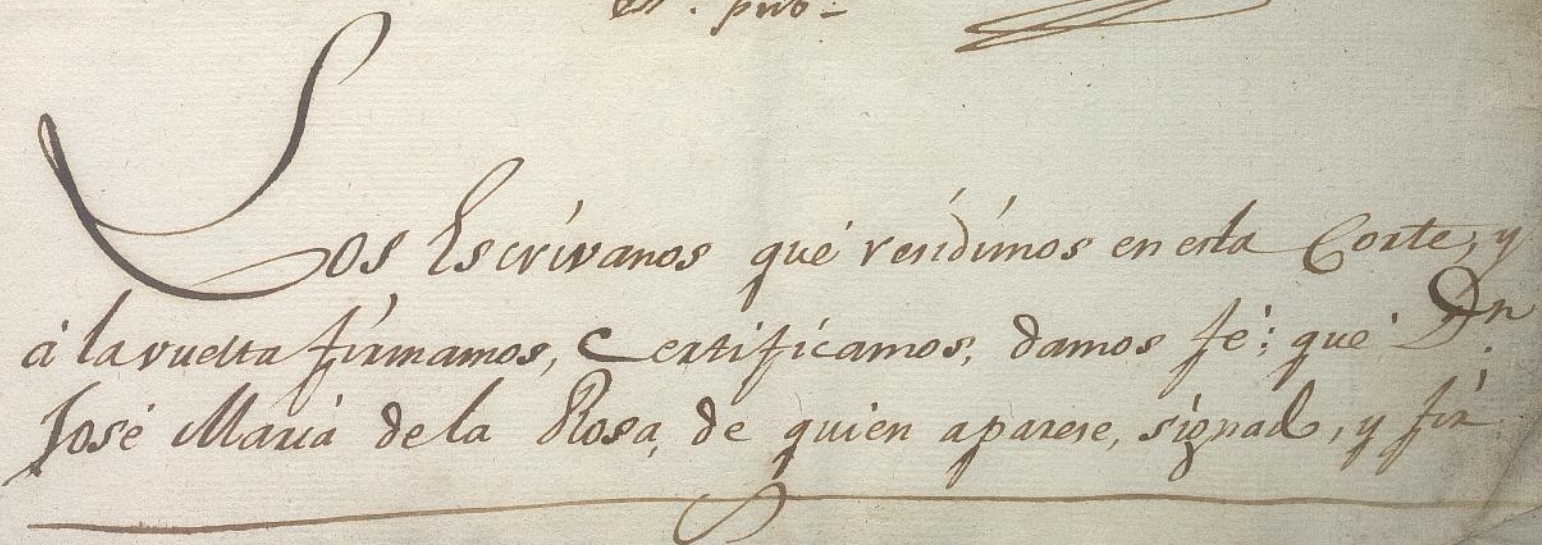 pub.
Los Escrívanos qué resídímos en esta Corte, y
á la vuelta fírmamos, Certifícamos, damos fé; qué Dn.
José María de la Rosa, de quíen aparese, sígnad, y fir